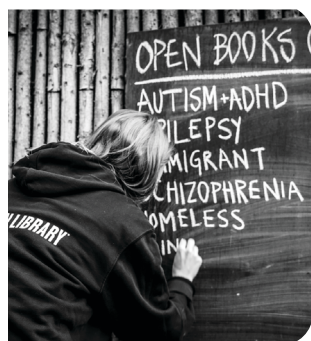 OPEN BOOKS
AUTISM+ADHD
PILEPSY
MMIGRANT
CHIZOPHRENIA
HOMELESS
LIBRARY